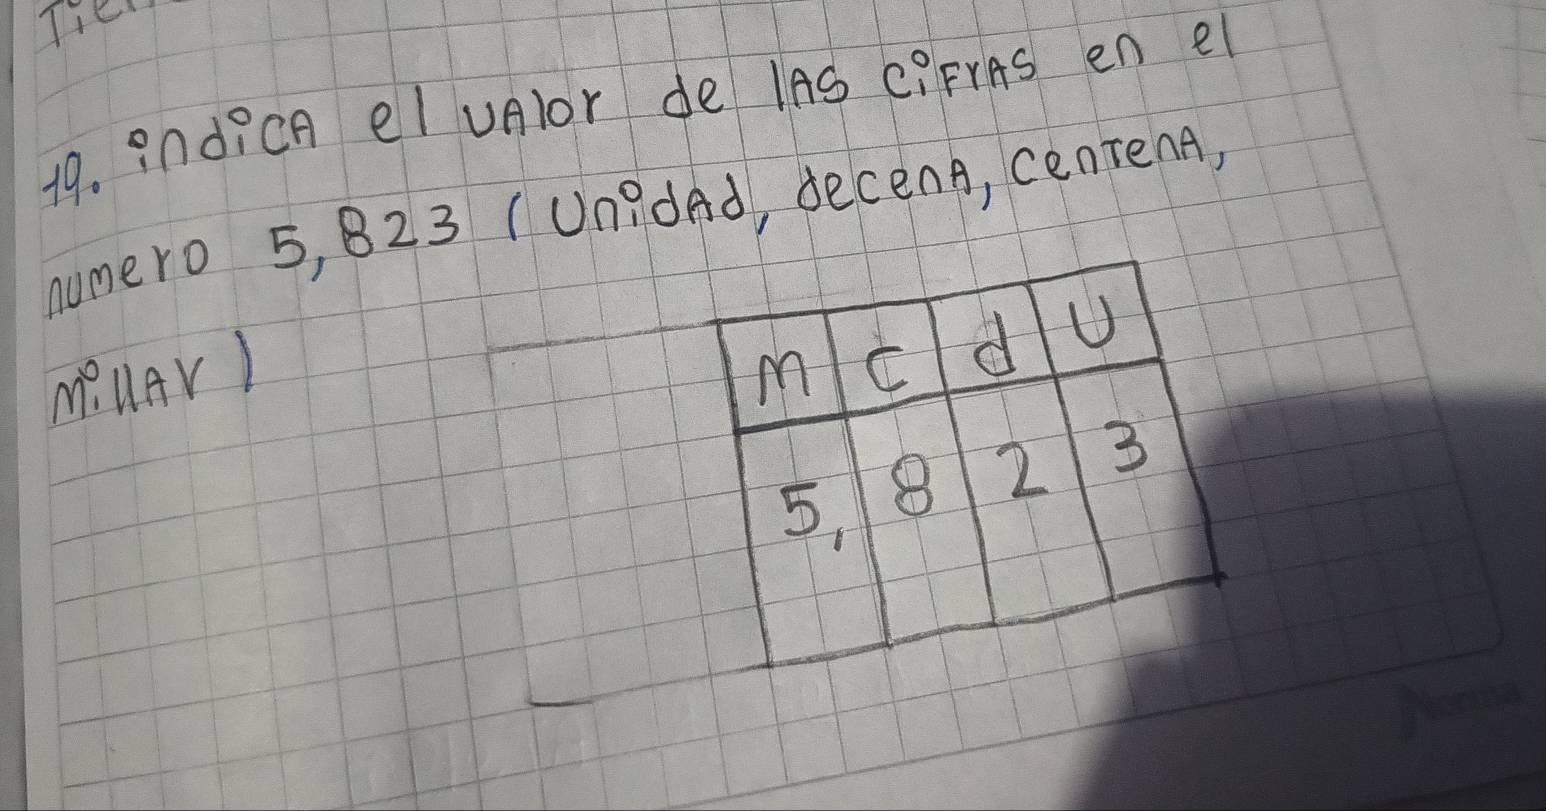 Tie
19. indicA el vAlor de lAs ciFrAs en el
numero 5,823 (UnidAd, decenA, CenTenA,
MillAr)
M C d U
5, 8 2 3